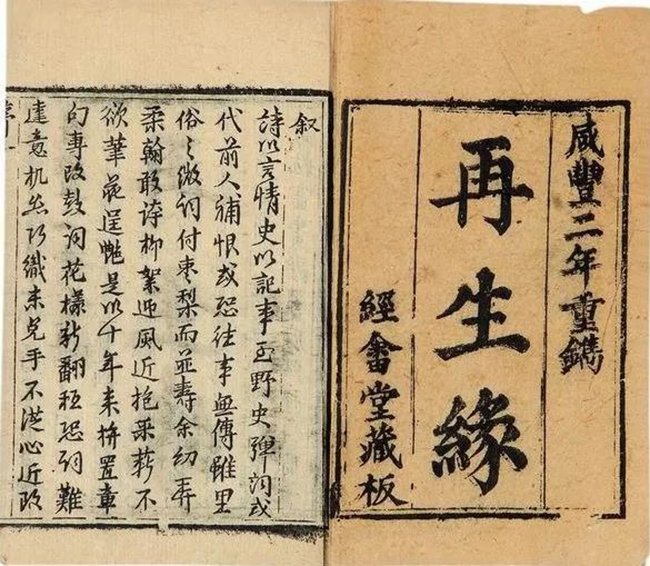 咸豐二年重鐫
再生緣
經畬堂藏板
叙
詩以言情史以記事至野史彈詞或
代前人補恨或恐往事無傳雖里
俗之微詞付棗梨而並壽余幼弄
柔翰敢誇柳絮迎風近抱采薪不
欲筆花逞艷是以十年來摒置章
句專改鼓詞花樣新翻秪恐詞難
達意机絲巧織未免手不從心近改